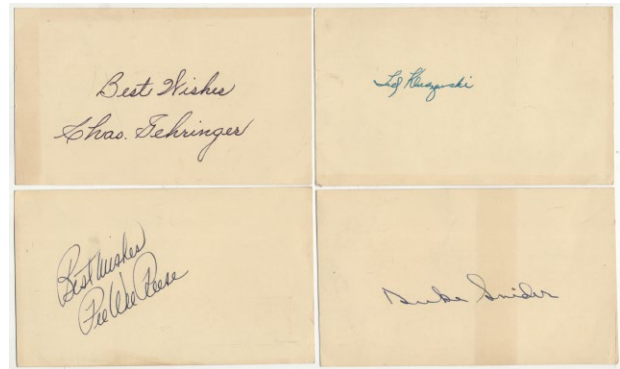 Best Wishes
Chas. Gehringer
Ted Kluszewski
Best wishes
Pee Wee Reese
Duke Snider